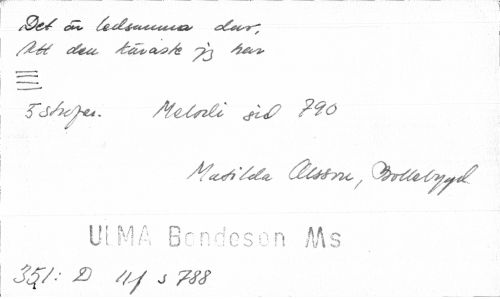 Det är ledsamma dar,
Att den käraste jg har
5 strofer. Melodi sid 790
Matilda Olsson, Bollebygd
ULMA Bondeson Ms
351: D 11f s 788